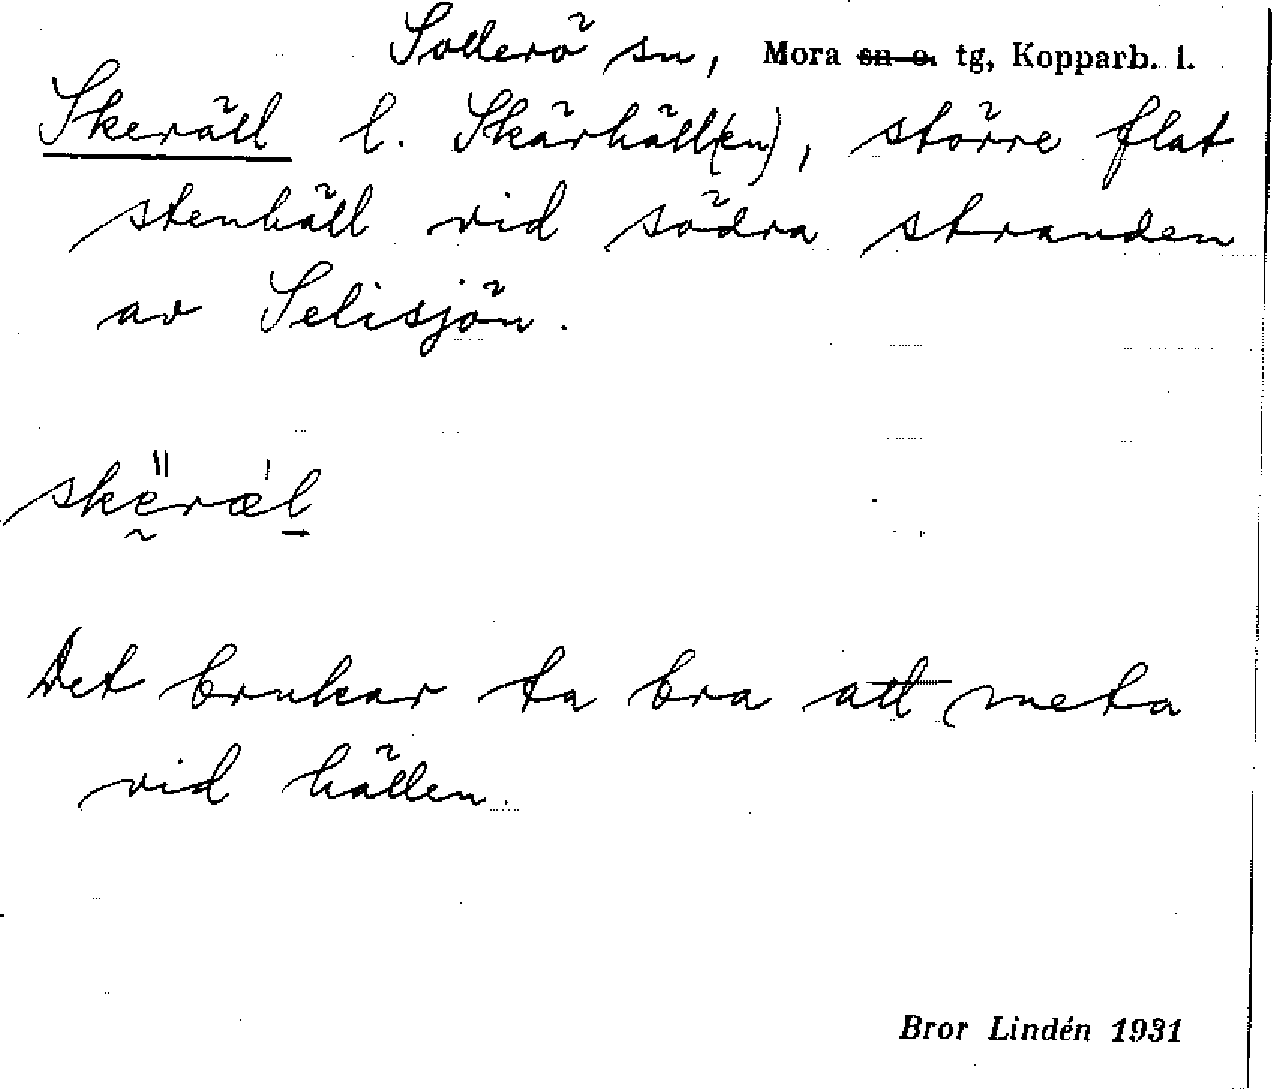 Sollerö sn, Mora sn o. tg, Kopparb. l.
Skeräll l. Skärhäll(en), större flat
stenhäll vid södra stranden
av Selisjön.
skeræl
Det brukar ta bra att meta
vid hällen.
Bror Lindén 1931